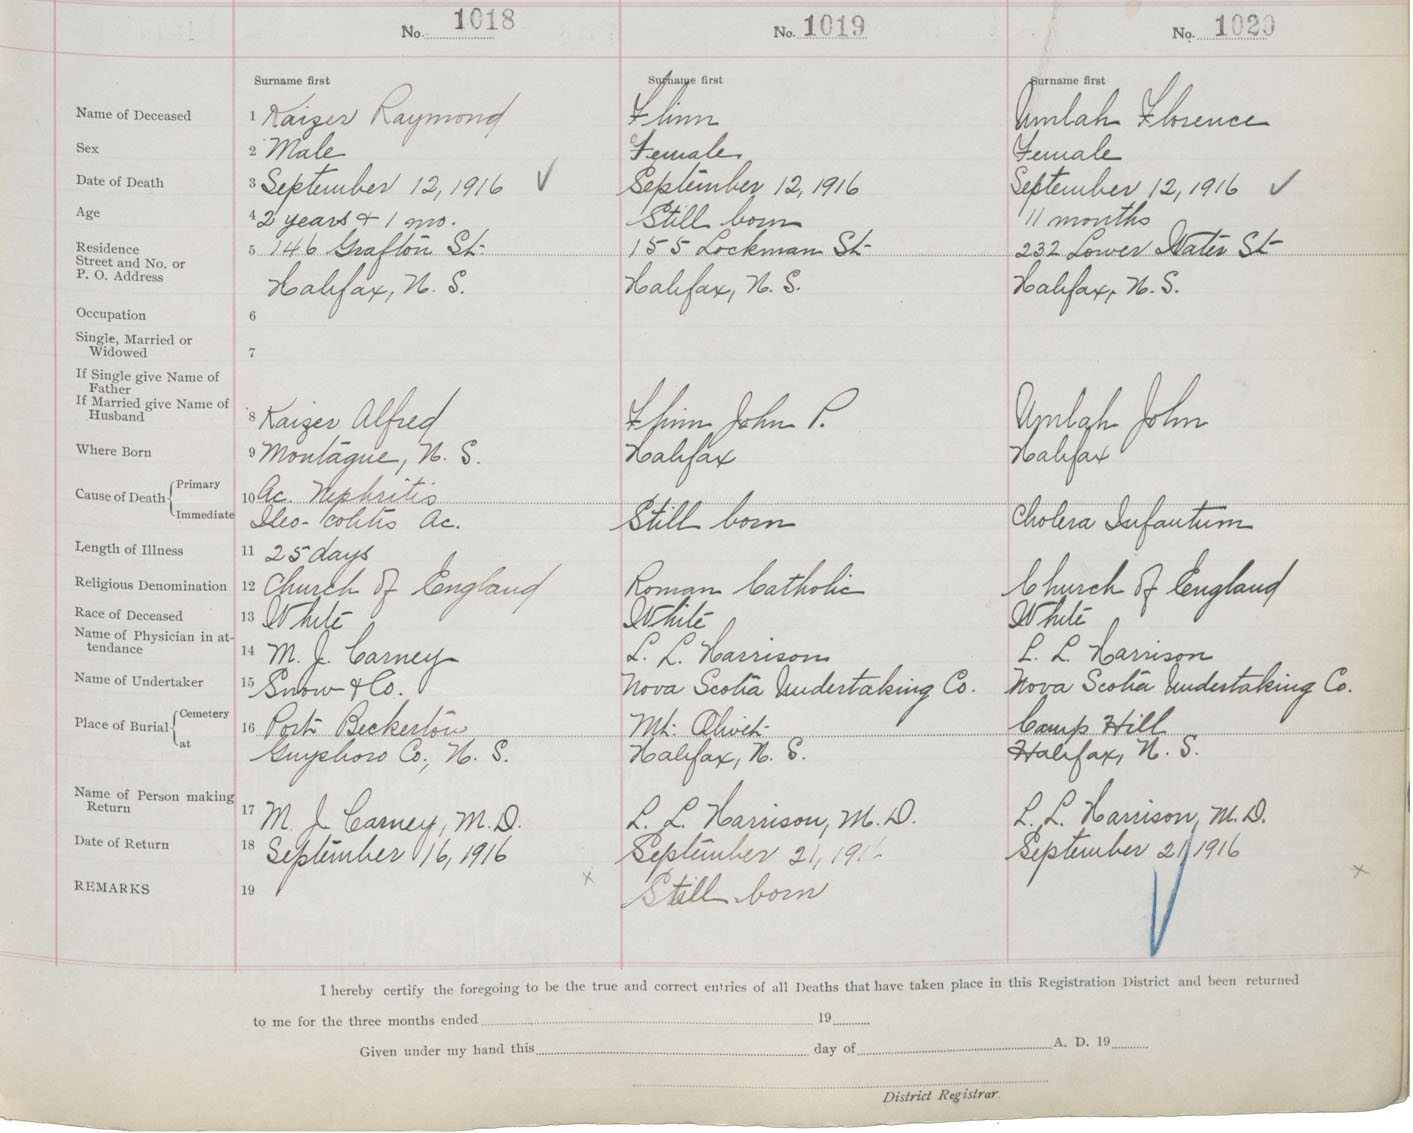 No. 1018 No. 1019 No. 1020
Surname first Surname first Surname first
Name of Deceased 1 Kaizer Raymond Flinn Umlah Florence
Sex 2 Male Female Female
Date of Death 3 September 12, 1916 ✓ September 12, 1916 September 12, 1916 ✓
Age 4 2 years + 1 mo. Still born 11 months
Residence
Street and No. or 5 146 Grafton St. 155 Lockman St 232 Lower Water St
P. O. Address Halifax, N. S. Halifax, N. S. Halifax, N. S.
Occupation 6
Single, Married or
Widowed 7
If Single give Name of
Father
If Married give Name of
Husband 8 Kaizer Alfred Flinn John P. Umlah John
Where Born 9 Montague, N. S. Halifax Halifax
Cause of Death Primary 10 Ac. Nephritis
Immediate Ileo-Colitis Ac. Still born Cholera Infantum
Length of Illness 11 25 days
Religious Denomination 12 Church of England Roman Catholic Church of England
Race of Deceased 13 White White White
Name of Physician in at-
tendance 14 M. J. Carney L. L. Harrison L. L. Harrison
Name of Undertaker 15 Snow & Co. Nova Scotia Undertaking Co. Nova Scotia Undertaking Co.
Place of Burial Cemetery 16 Port Beckerton Mt. Olivet Camp Hill
at Guysboro Co., N. S. Halifax, N. S. Halifax, N. S.
Name of Person making
Return 17 M. J. Carney, M.D. L. L. Harrison, M.D. L. L. Harrison, M.D.
Date of Return 18 September 16, 1916 September 21, 1916 September 21, 1916
REMARKS 19 x Still born x
I hereby certify the foregoing to be the true and correct entries of all Deaths that have taken place in this Registration District and been returned
to me for the three months ended 19
Given under my hand this day of A. D. 19
District Registrar.